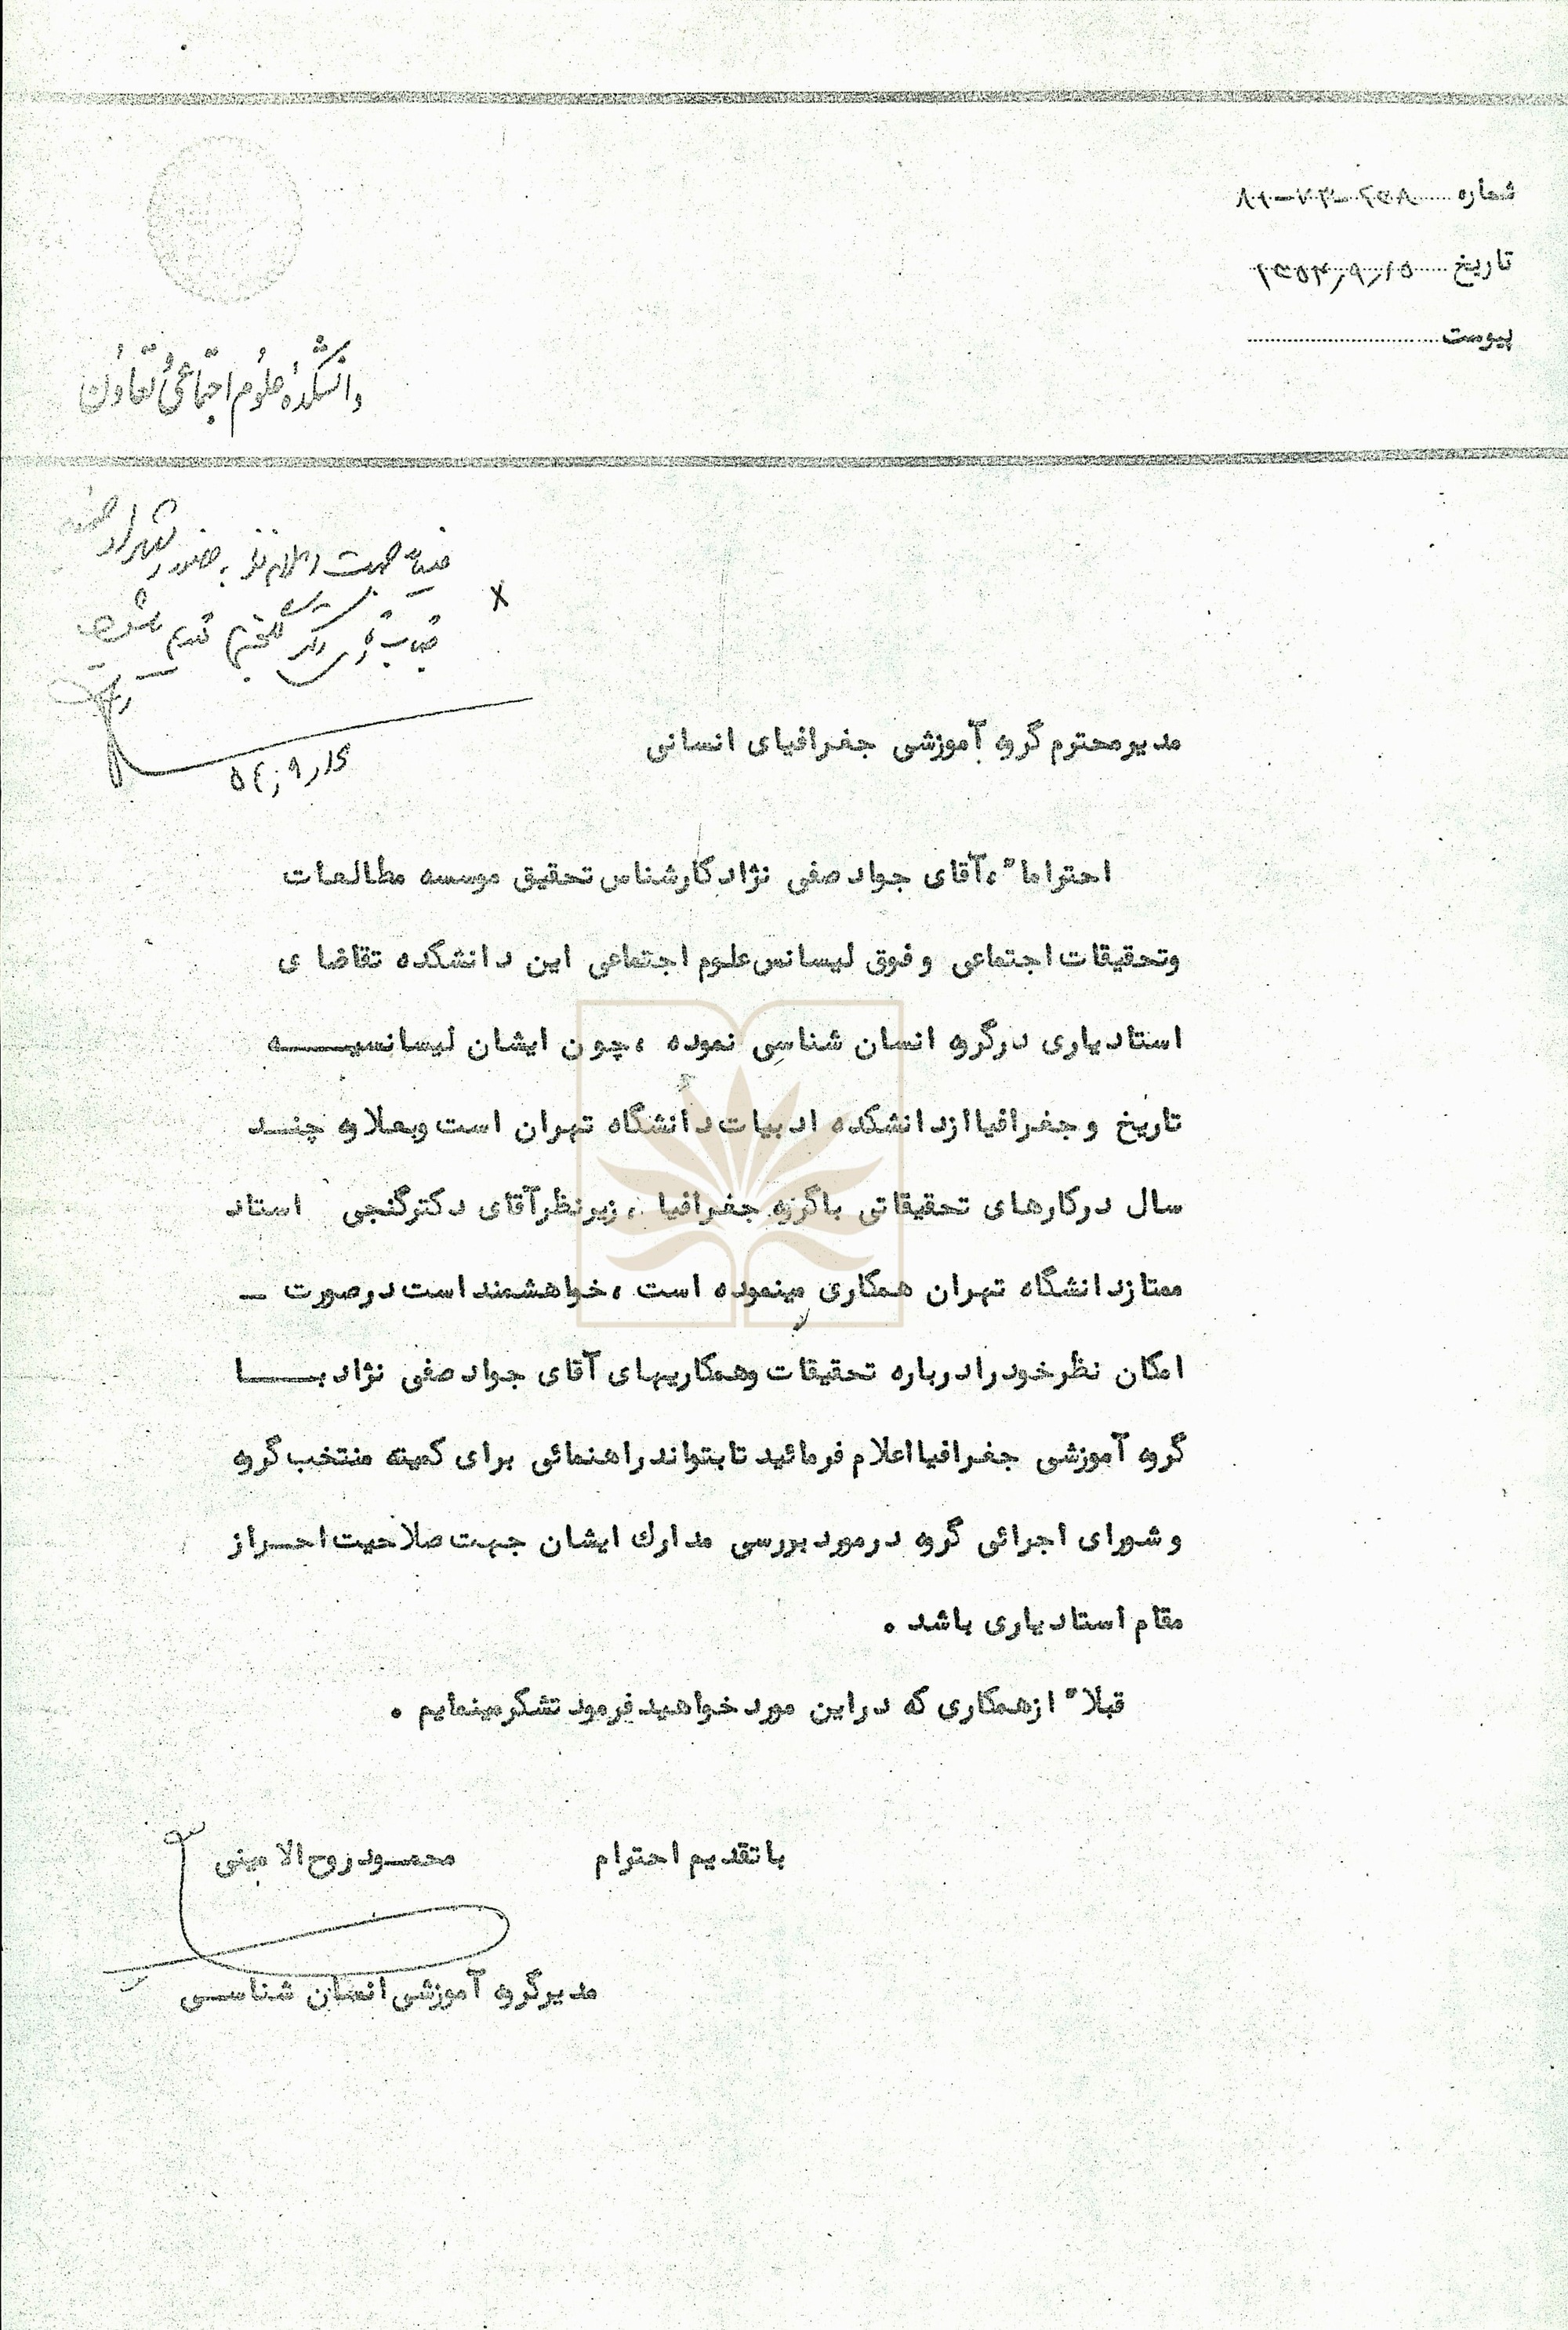 شماره
تاریخ ۱۳۵۴٫۹٫۱۵
پیوست
دانشکده علوم اجتماعی و تعاون
جهت اعلام نظر به حضور
جناب آقای دکتر گنجی تقدیم
۵۴٫۹٫۱۶
مدیر محترم گروه آموزشی جغرافیای انسانی
احتراما" ، آقای جواد صفی نژاد کارشناس تحقیق موسسه مطالعات
وتحقیقات اجتماعی و فوق لیسانس علوم اجتماعی این دانشکده تقاضا ی
استادیاری درگروه انسان شناسی نموده ، چون ایشان لیسانسیـــه
تاریخ و جغرافیا ازدانشکده ادبیات دانشگاه تهران است وبعلاوه چنــد
سال درکارهای تحقیقاتی باگروه جغرافیا ، زیرنظرآقای دکترگنجی استاد
ممتازدانشگاه تهران همکاری مینموده است ، خواهشمند است درصورت ـ
امکان نظرخودرا درباره تحقیقات وهمکاریهای آقای جواد صفی نژاد بــــا
گروه آموزشی جغرافیا اعلام فرمائید تابتواند راهنمائی برای کمیته منتخب گروه
و شورای اجرائی گروه درمورد بررسی مدارك ایشان جهت صلاحیت احــراز
مقام استادیاری باشد .
قبلا" ازهمکاری که دراین مورد خواهید فرمود تشکرمینمایم .
باتقدیم احترام محمــود روح الامینی
مدیرگروه آموزشی انسان شناســی